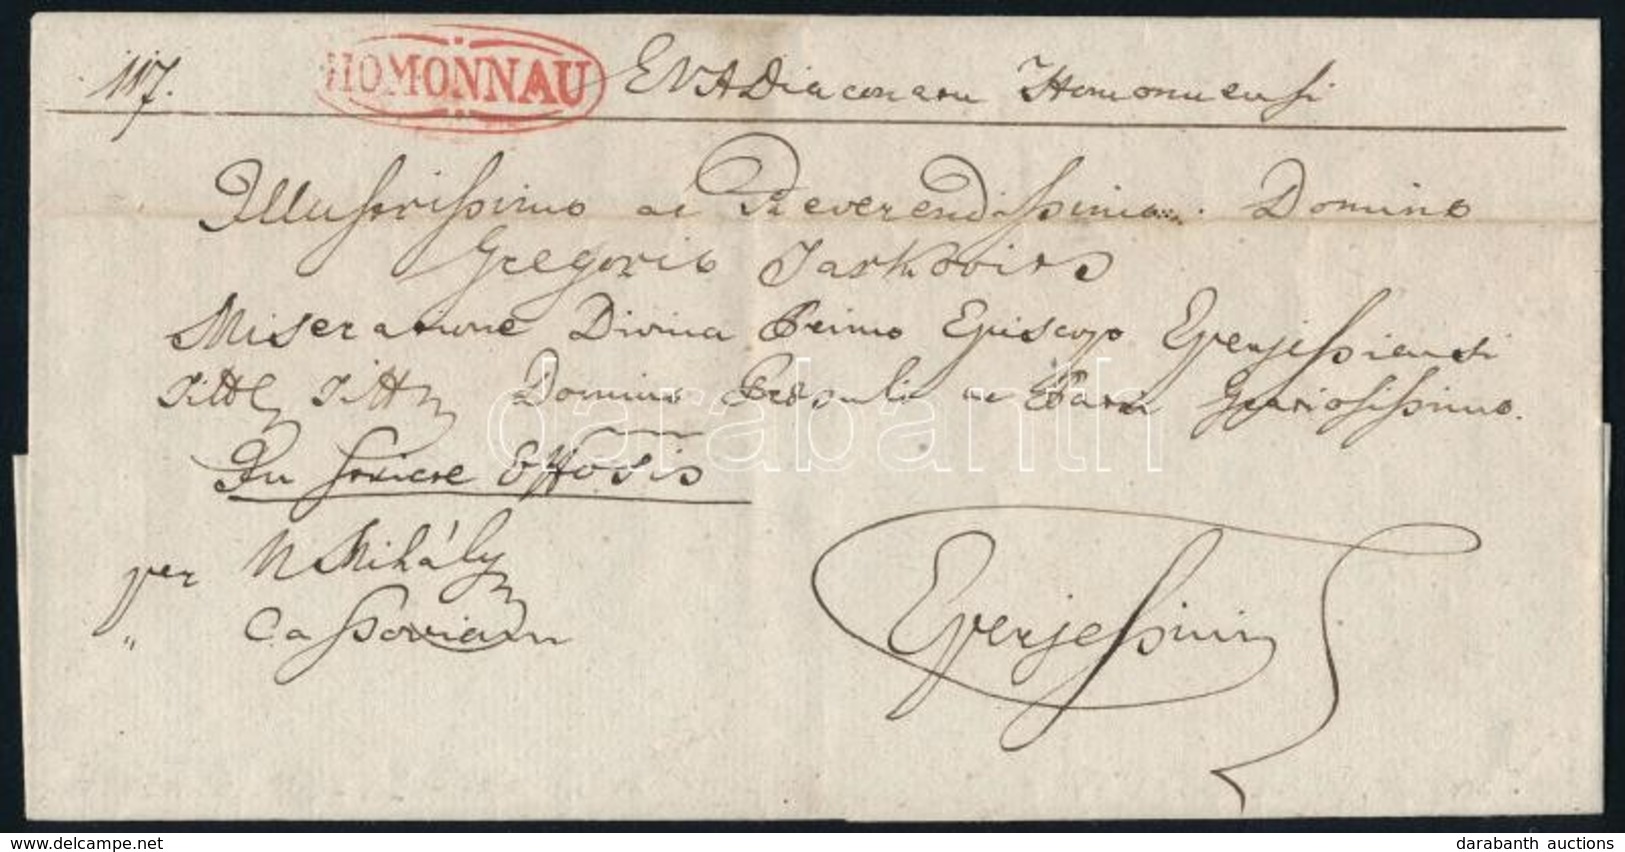 117. HOMONNAU E VADiaconatu Homonnensi
Illustrissimo ac Reverendissimo Domino
Gregorio Tarkovits
Miseratione Divina Primo Episcopo Eperjessiensi
Titt Titt Domino Praesuli ac Patri Gratiosissimo.
Ex officio
per N Mihály
" Cassoviam
Eperjessini
darabanth
delcampe.net
darabanth auctions